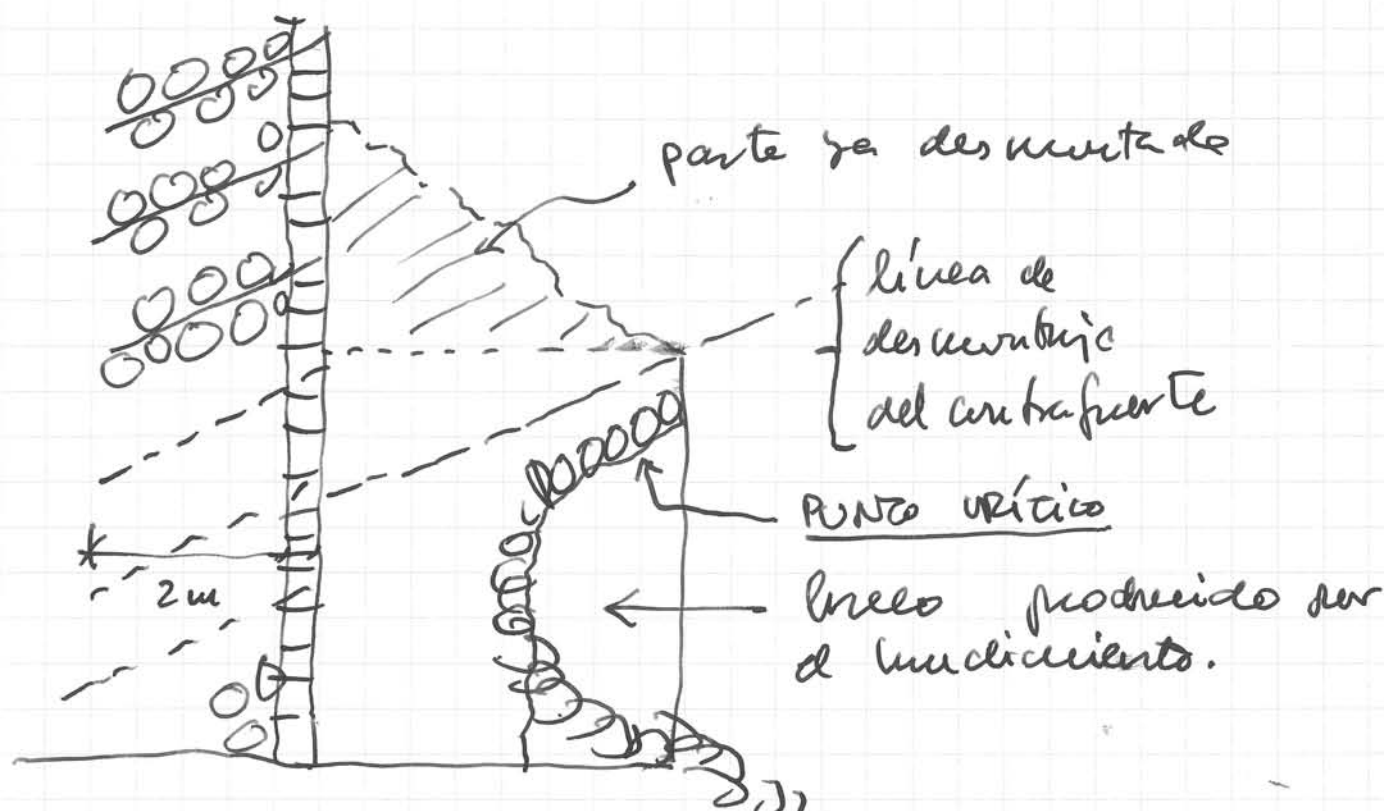 parte ya desmontada
línea de
desmontaje
del contrafuerte
PUNTO CRÍTICO
hueco producido por
el hundimiento.
2 m